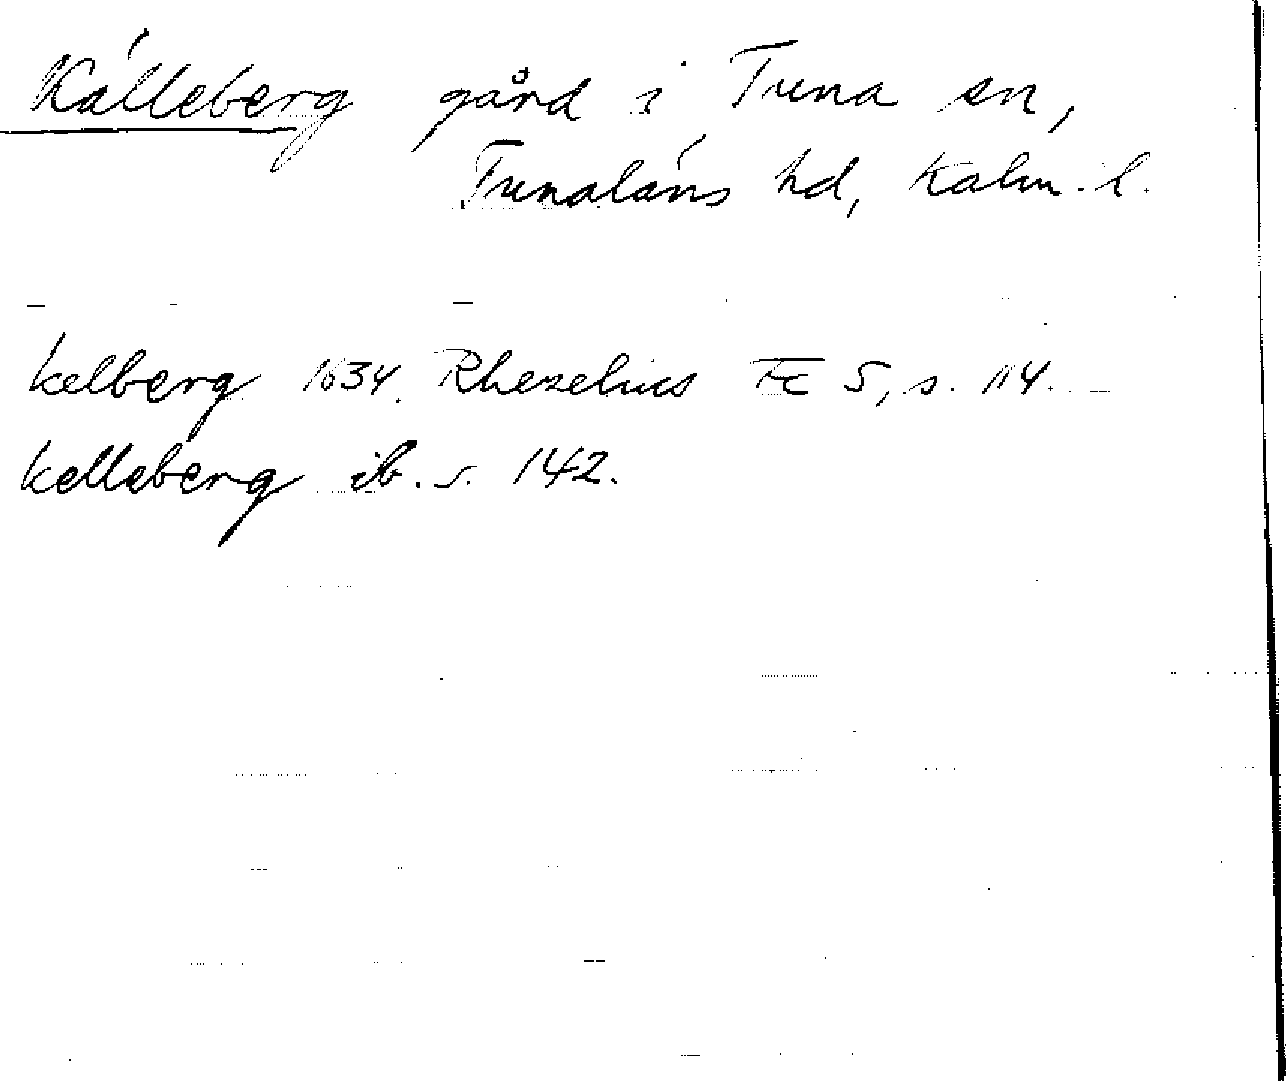 Källeberg gård i Tuna sn,
Tunaläns hd, Kalm. l.
Kelberg 1634. Rhezelius Fc 5, s. 114.
Kelleberg ib. s. 142.